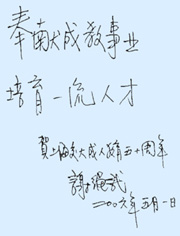 奉献成教事业
培育一流人才
贺上海交大成人教育五十周年
谢绳武
二〇〇六年五月一日